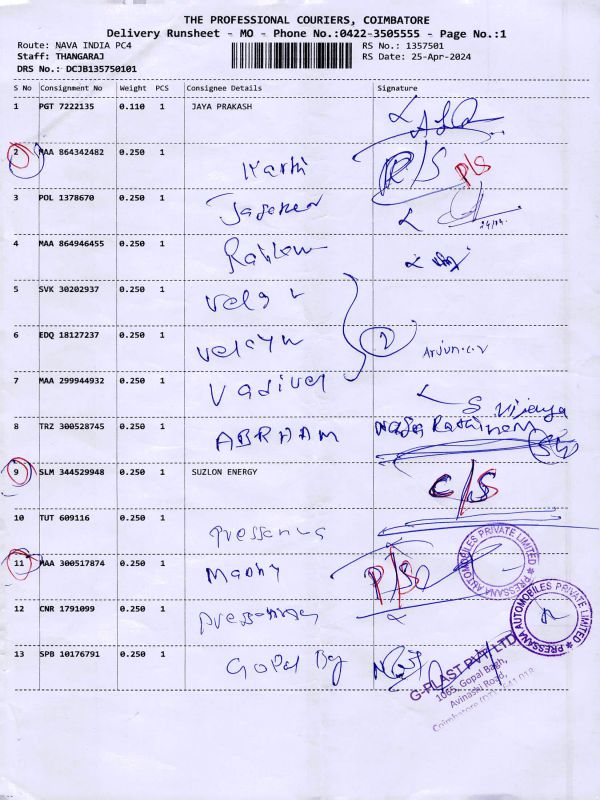 THE PROFESSIONAL COURIERS, COIMBATORE
Delivery Runsheet - MO - Phone No.:0422-3505555 - Page No.:1
Route: NAVA INDIA PC4
RS No.: 1357501
Staff: THANGARAJ
RS Date: 25-Apr-2024
DRS No.: DCJB135750101
S No Consignment No Weight PCS Consignee Details Signature
1 PGT 7222135 0.110 1 JAYA PRAKASH
2 MAA 864342482 0.250 1 P/S
3 POL 1378670 0.250 1
4 MAA 864946455 0.250 1
5 SVK 30202937 0.250 1
6 EDQ 18127237 0.250 1 velayu 2 Arjun.c.v
7 MAA 299944932 0.250 1 Vadivel
S Vijaya
8 TRZ 300528745 0.250 1 ABRAHAM
9 SLM 344529948 0.250 1 SUZLON ENERGY C/S
10 TUT 609116 0.250 1
11 MAA 300517874 0.250 1 Madhy P/S
PRESSANA AUTOMOBILES PRIVATE LIMITED
12 CNR 1791099 0.250 1
PRESSANA AUTOMOBILES PRIVATE LIMITED
13 SPB 10176791 0.250 1 Gopal Bag
G-PLAST PVT LTD
1065, Gopal Bagh,
Avinashi Road,